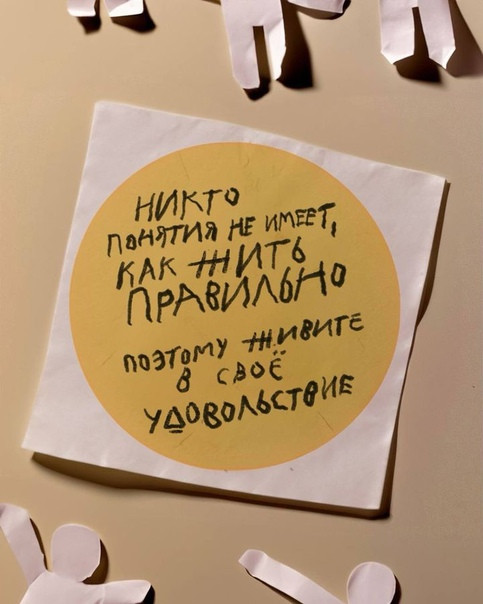 НИКТО
ПОНЯТИЯ НЕ ИМЕЕТ,
КАК ЖИТЬ
ПРАВИЛЬНО
ПОЭТОМУ ЖИВИТЕ
В СВОЁ
УДОВОЛЬСТВИЕ